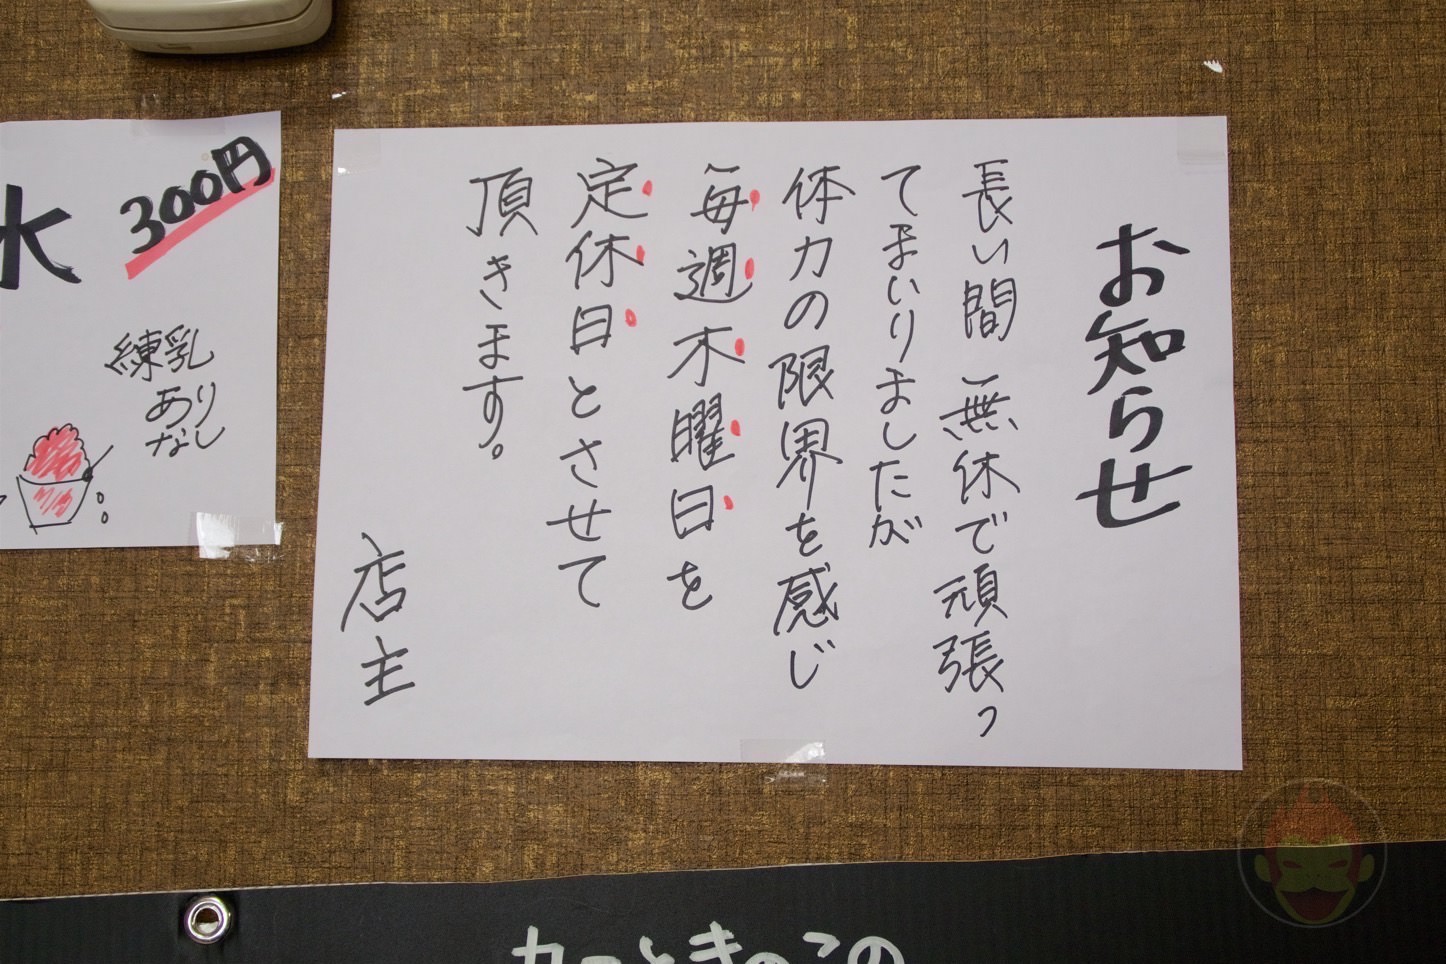 お知らせ
長い間無休で頑張っ
てまいりましたが
体力の限界を感じ
毎週木曜日を
定休日とさせて
頂きます。
店主
氷
300円
練乳
あり
なし